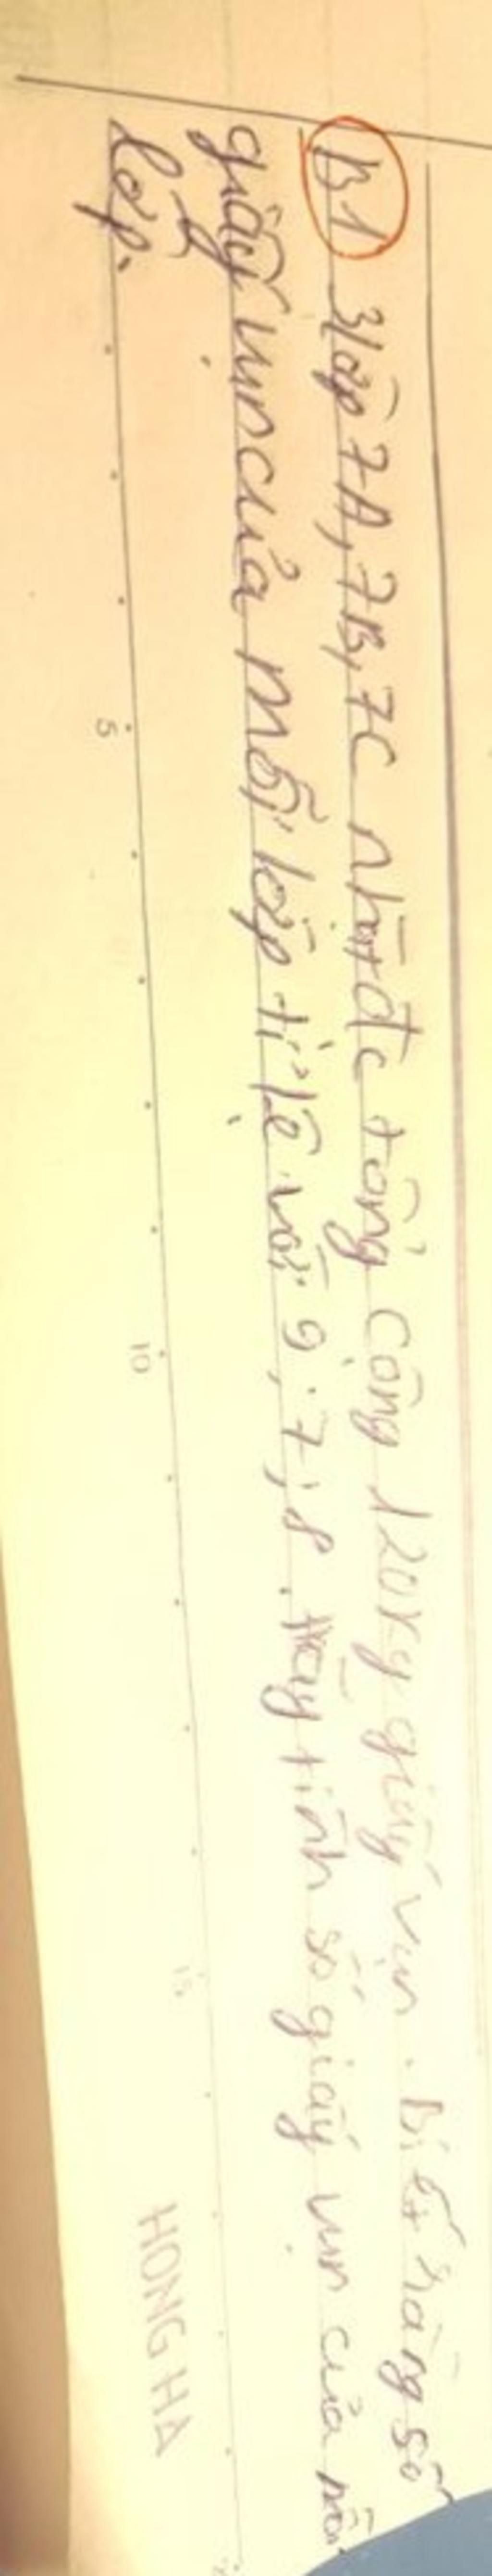 B1 3 lớp 7A, 7B, 7C nhặt đc tổng cộng 120kg giấy vụn. Biết rằng số
giấy vụn của mỗi lớp tỉ lệ với 9; 7; 8. Hãy tính số giấy vụn của mỗi
lớp.
5
10
15
HONG HA